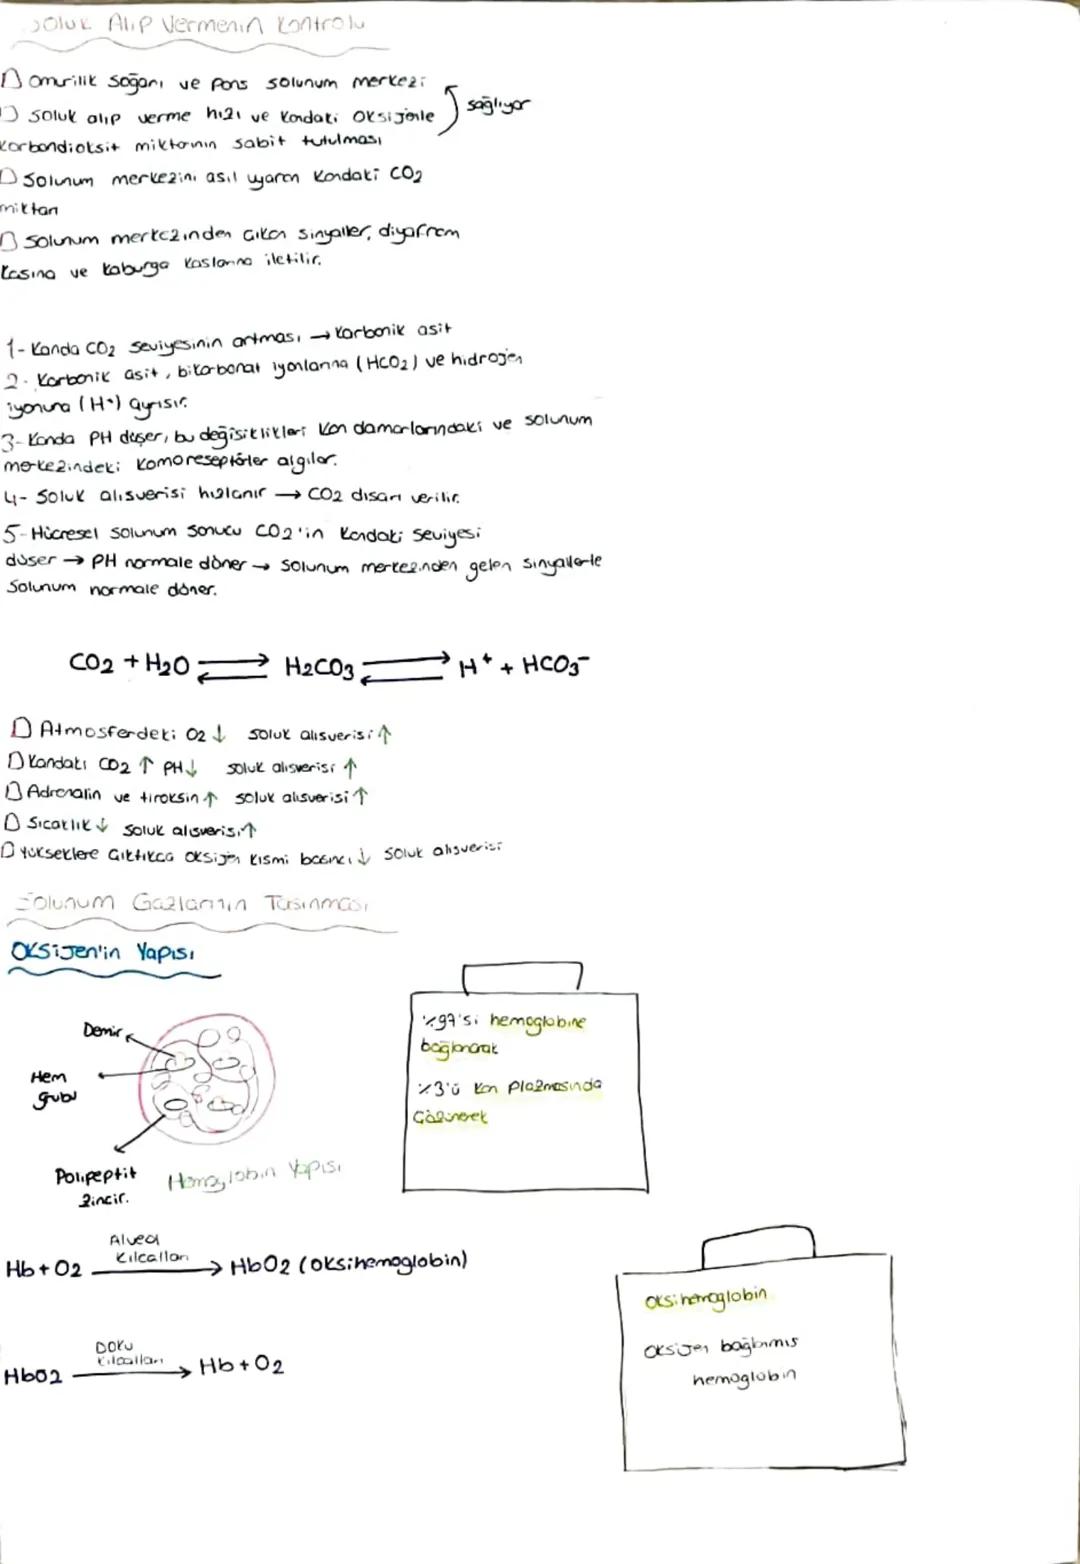 Soluk Alıp Vermenin Kontrolü
omurilik soğanı ve pons solunum merkezi
soluk alıp verme hızı ve kandaki oksijenle
sağlıyor
karbondioksit miktarının sabit tutulması
Solunum merkezini asıl uyaran kandaki CO2
miktarı
Solunum merkezinden çıkan sinyaller, diyafram
kasına ve kaburga kaslarına iletilir.
1- Kanda CO2 seviyesinin artması → karbonik asit
2- Karbonik asit, bikarbonat iyonlarına (HCO2) ve hidrojen
iyonuna (H+) ayrışır.
3- Kanda PH düşer, bu değişiklikleri kan damarlarındaki ve solunum
merkezindeki komoreseptörler algılar.
4- Soluk alışverişi hızlanır → CO2 dışarı verilir.
5- Hücresel solunum sonucu CO2'in kandaki seviyesi
düşer → PH normale döner → solunum merkezinden gelen sinyallerle
Solunum normale döner.
CO2 + H2O ⇌ H2CO3 ⇌ H+ + HCO3-
Atmosferdeki O2 ↓ soluk alışverişi ↑
Kandaki CO2 ↑ PH ↓ soluk alışverişi ↑
Adrenalin ve tiroksin ↑ soluk alışverişi ↑
Sıcaklık ↓ soluk alışverişi ↑
Yükseklere çıktıkça oksijen kısmi basıncı ↓ soluk alışverişi
Solunum Gazlarının Taşınması
OKSİJEN'in Yapısı
%97'si hemoglobine
bağlanarak
%3'ü kan plazmasında
çözünerek
Demir
Hem
grubu
Polipeptit
zincir.
Hemoglobin Yapısı
Alveol
kılcalları
Hb + O2 → HbO2 (oksihemoglobin)
Doku
kılcalları
HbO2 → Hb + O2
Oksihemoglobin
Oksijen bağlanmış
hemoglobin